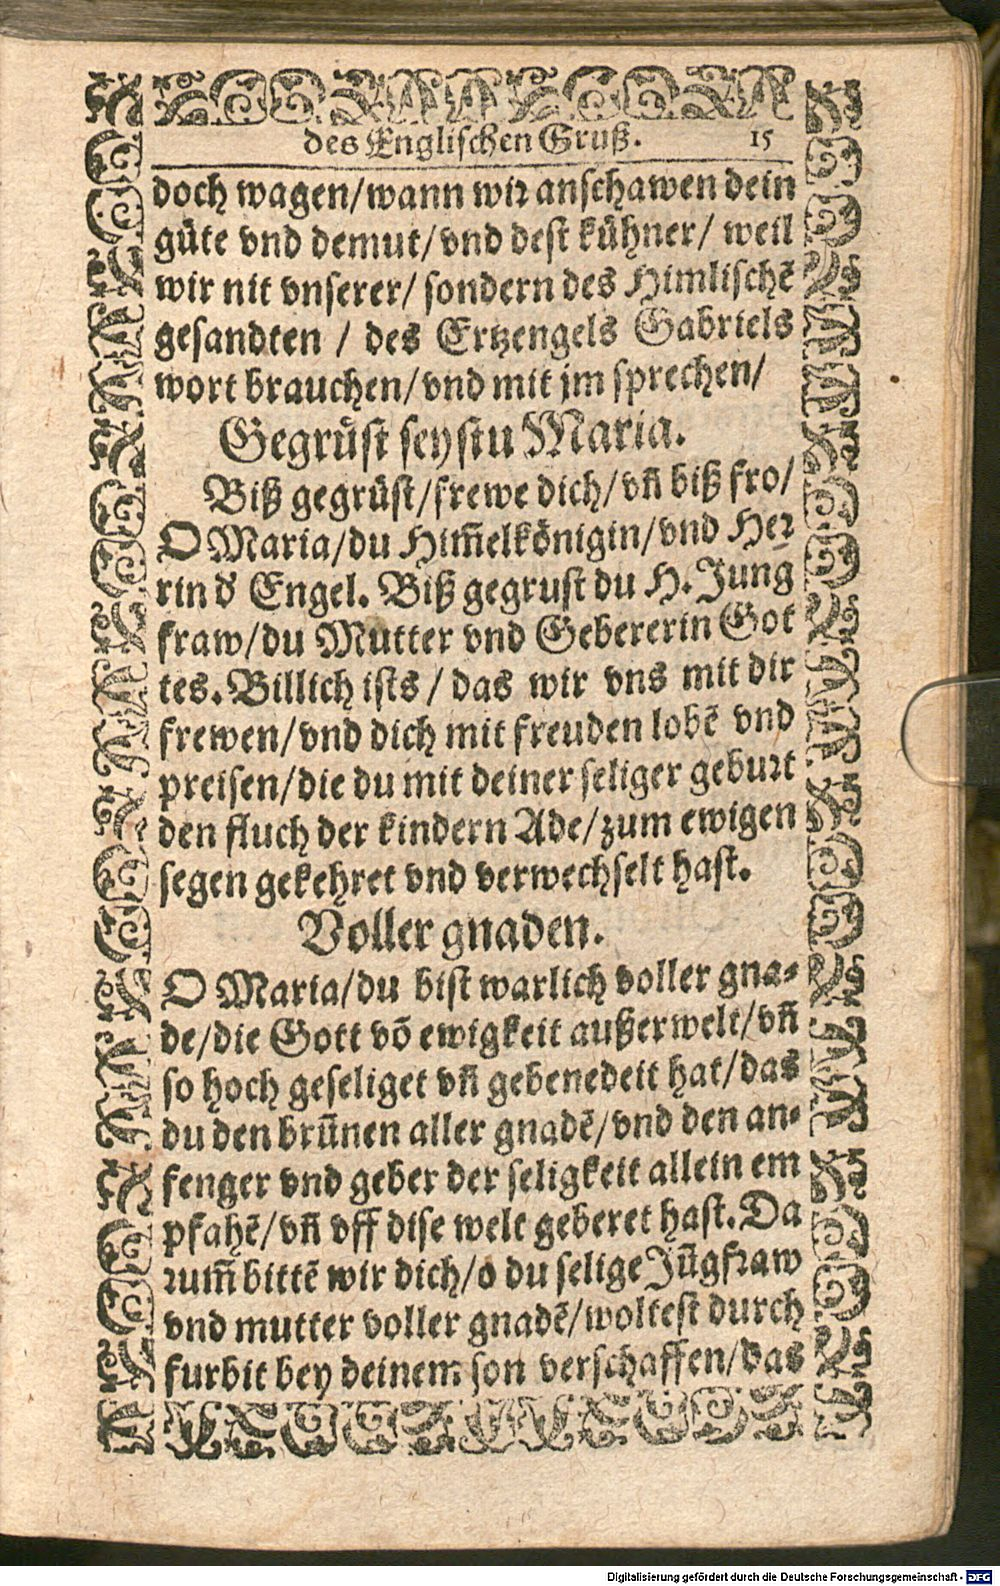 des Englischen Gruß. 15
doch wagen/wann wir anschawen dein
güte vnd demut/vnd dest kühner/ weil
wir nit vnserer/ sondern des Himlischē
gesandten / des Ertzengels Gabriels
wort brauchen/vnd mit jm sprechen/
Gegrüst seystu Maria.
Biß gegrüst/frewe dich/vñ biß fro/
O Maria/du Him̃elkönigin/vnd Her
rin d' Engel. Biß gegrust du H. Jung
fraw/du Mutter vnd Gebererin Got
tes. Billich ists / das wir vns mit dir
frewen/vnd dich mit freuden lobē vnd
preisen/die du mit deiner seliger geburt
den fluch der kindern Ade/zum ewigen
segen gekehret vnd verwechselt hast.
Voller gnaden.
O Maria/du bist warlich voller gna-
de/die Gott võ ewigkeit außerwelt/vñ
so hoch geseliget vñ gebenedeit hat/das
du den brũnen aller gnadē/vnd den an-
fenger vnd geber der seligkeit allein em
pfahē/vñ vff dise welt geberet hast. Da
rum̃ bittē wir dich/o du selige Jũgfraw
vnd mutter voller gnadē/woltest durch
furbit bey deinem son verschaffen/das
Digitalisierung gefördert durch die Deutsche Forschungsgemeinschaft - DFG